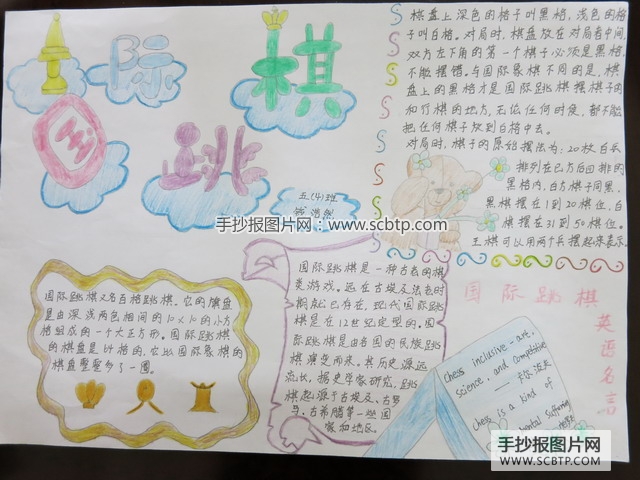 国际
跳棋
五(4)班
浩然
手抄报图片网:www.scbtp.com
棋盘上深色的格子叫黑格,浅色的格
子叫白格。对局时,棋盘放在对局者中间,
双方左下角的第一个棋子必须是黑格,
不能摆错。与国际象棋不同的是,棋
盘上的黑格才是国际跳棋摆棋子的
和行棋的地方,无论任何时候,都不能
把任何棋子放到白格中去。
对局时,棋子的原始摆法为:20枚白子
排列在己方后四排的
黑格内,白方棋子同黑,
黑棋摆在1到20棋位,白
棋摆在31到50棋位。
王棋可以用两个兵摆起来表示。
国际跳棋又名百格跳棋。它的棋盘
是由深浅两色相间的10×10的小方
格组成的一个大正方形。国际跳棋
的棋盘是100格的,它比国际象棋的
棋盘整整多了一圈。
国际跳棋是一种古老的棋
类游戏。远在古埃及法老时
期就已存在,现代国际跳
棋是在12世纪定型的。国
际跳棋是由各国的民族跳
棋演变而来。其历史源远
流长。据史学家研究,跳
棋起源于古埃及、古罗
马、古希腊等一些国
家和地区。
国际跳棋
英语名言
Chess inclusive-art,
science, and competitive
Chess is a kind of
mental suffering
手抄报图片网
WWW.SCBTP.COM